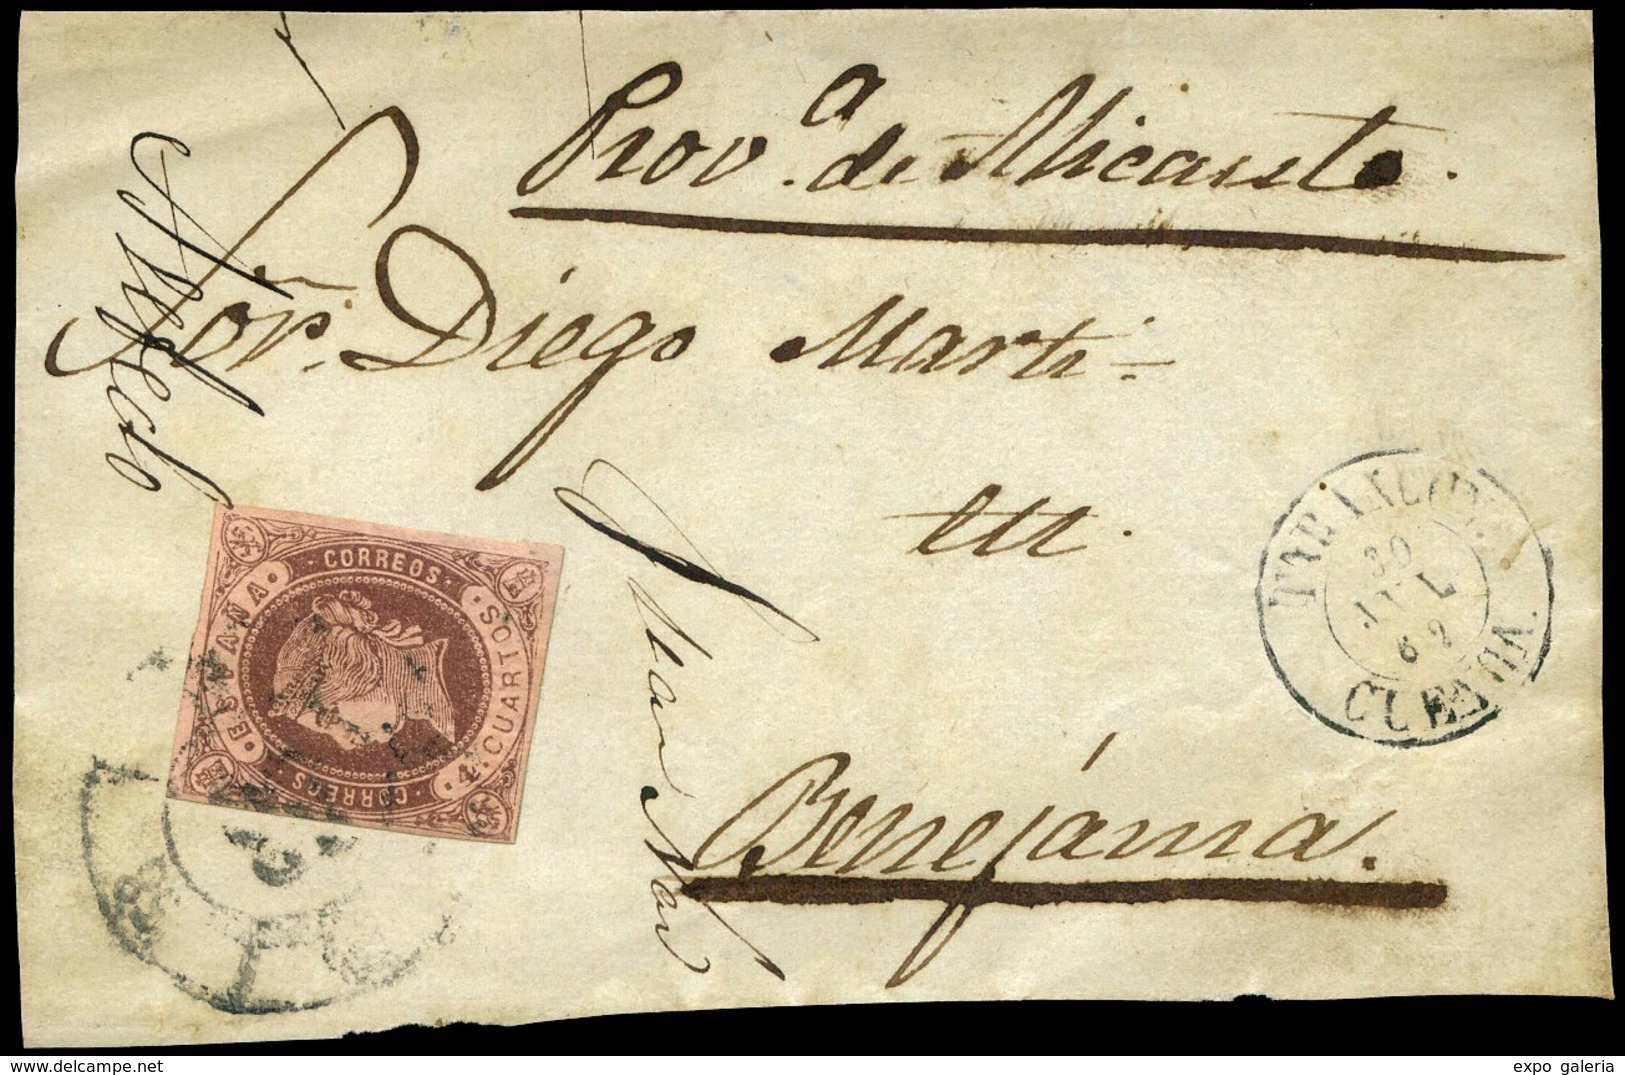 Prov.a de Alicante.
Señor. Diego Marti=
en.
Benejáma.
CORREOS
ESPAÑA
4 CUARTOS
CORREOS
TARANCON.
30
JUL
62
CUENCA.
expo galeria